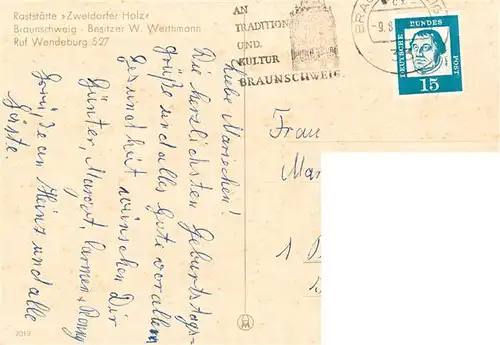 Raststätte »Zweidorfer Holz«
Braunschweig - Besitzer W. Werthmann
Ruf Wendeburg 527
AN
TRADITION
UND
KULTUR
BRAUNSCHWEIG
BRAU
-9.8
DEUTSCHE BUNDESPOST
15
Liebe Marischen!
Die herzlichsten Geburtstags-
grüße und alles Gute vor allem
Gesundheit wünschen Dir
Günter, Margot, Carmen + Ronny
Grüße an Heinz und alle
Gäste.
Frau
Mar
1
7013